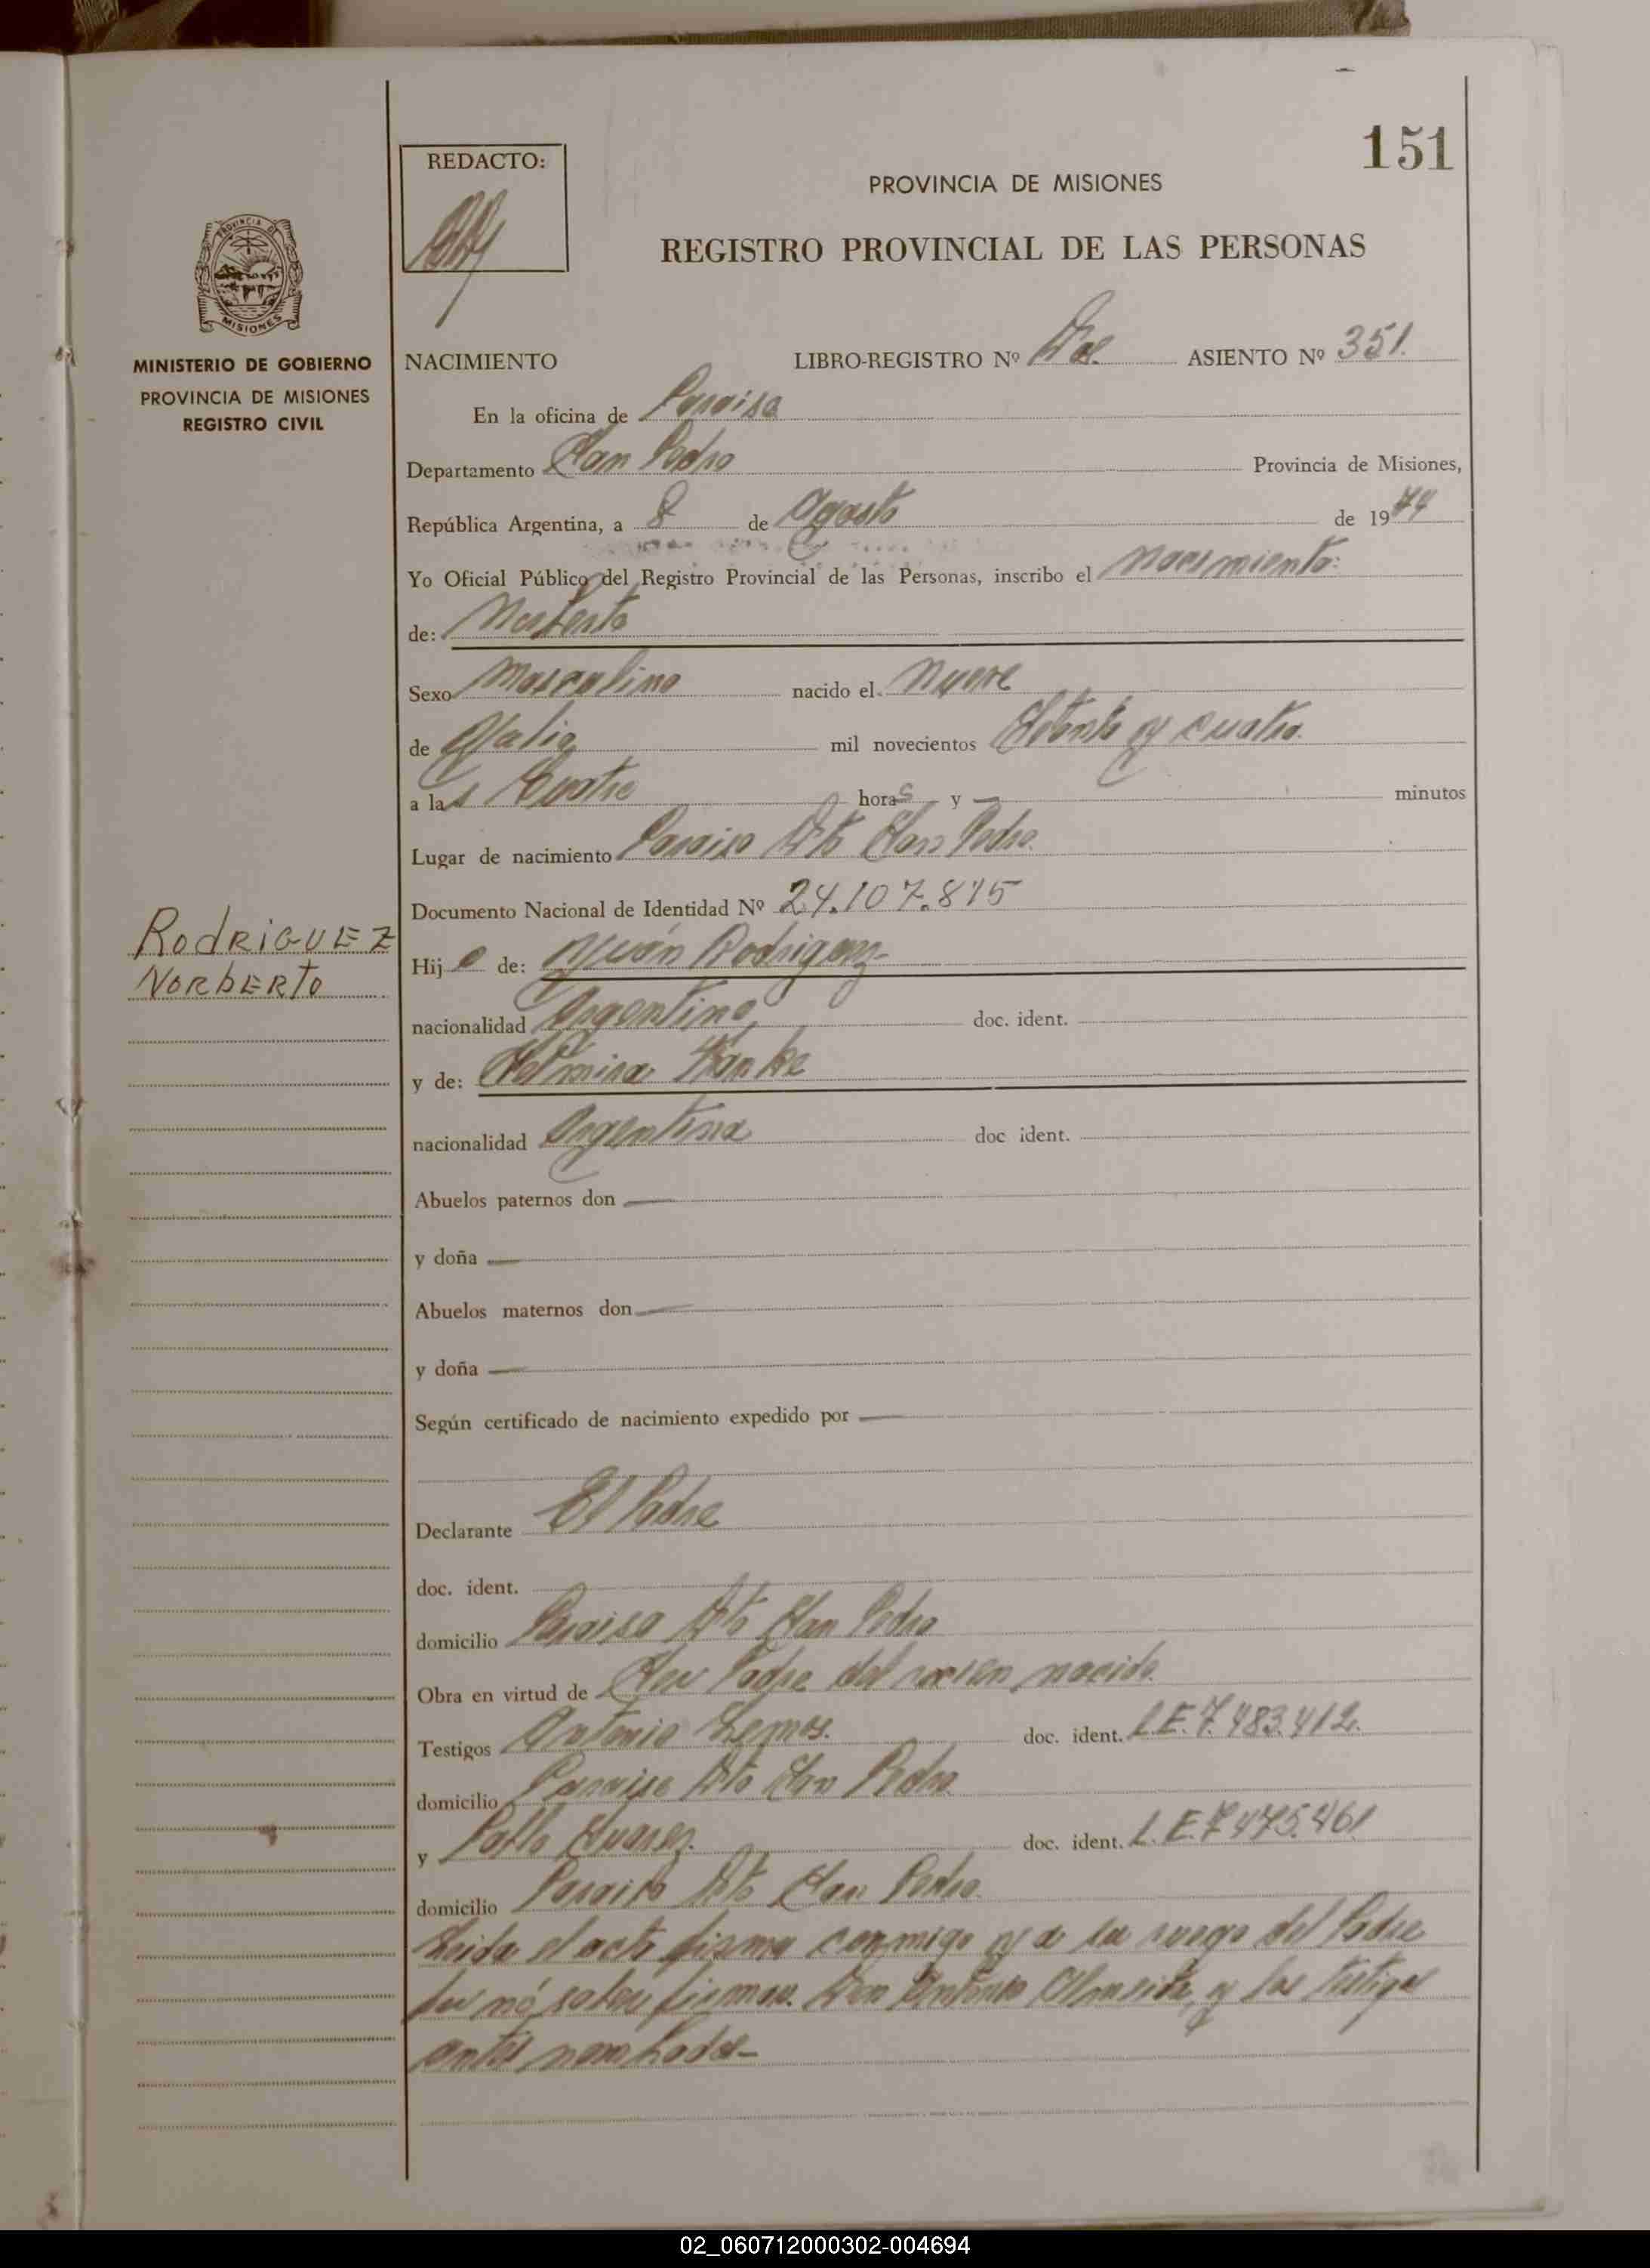 151
REDACTO:
PROVINCIA DE MISIONES
REGISTRO PROVINCIAL DE LAS PERSONAS
MISIONES
MINISTERIO DE GOBIERNO
PROVINCIA DE MISIONES
REGISTRO CIVIL
NACIMIENTO LIBRO-REGISTRO Nº Dos ASIENTO Nº 351.
En la oficina de Paraiso
Departamento San Pedro Provincia de Misiones,
República Argentina, a 8 de Agosto de 1974
Yo Oficial Público del Registro Provincial de las Personas, inscribo el Nacimiento:
de: Norberto
Sexo Masculino nacido el Nueve
de Julio mil novecientos Setenta y cuatro.
a las Cuatro horas y — minutos
Lugar de nacimiento Paraiso Dto San Pedro.
Documento Nacional de Identidad Nº 24.107.815
RODRIGUEZ
NORBERTO
Hijo de: Juán Rodriguez
nacionalidad Argentino, doc. ident.
y de:
nacionalidad Argentina doc ident.
Abuelos paternos don —
y doña —
Abuelos maternos don —
y doña —
Según certificado de nacimiento expedido por —
Declarante El Padre
doc. ident.
domicilio Paraiso Dto San Pedro
Obra en virtud de Ser Padre del recien nacido.
Testigos Antonio Lemos. doc. ident. L.E.7.483.412.
domicilio Paraiso Dto San Pedro.
y Pablo Suarez. doc. ident. L.E.7475.461
domicilio Paraiso Dto San Pedro.
Leida el acta firma conmigo y a su ruego del Padre
por nó saber firmar. Don Antonio y los testigos
antes nombrados—
02_060712000302-004694